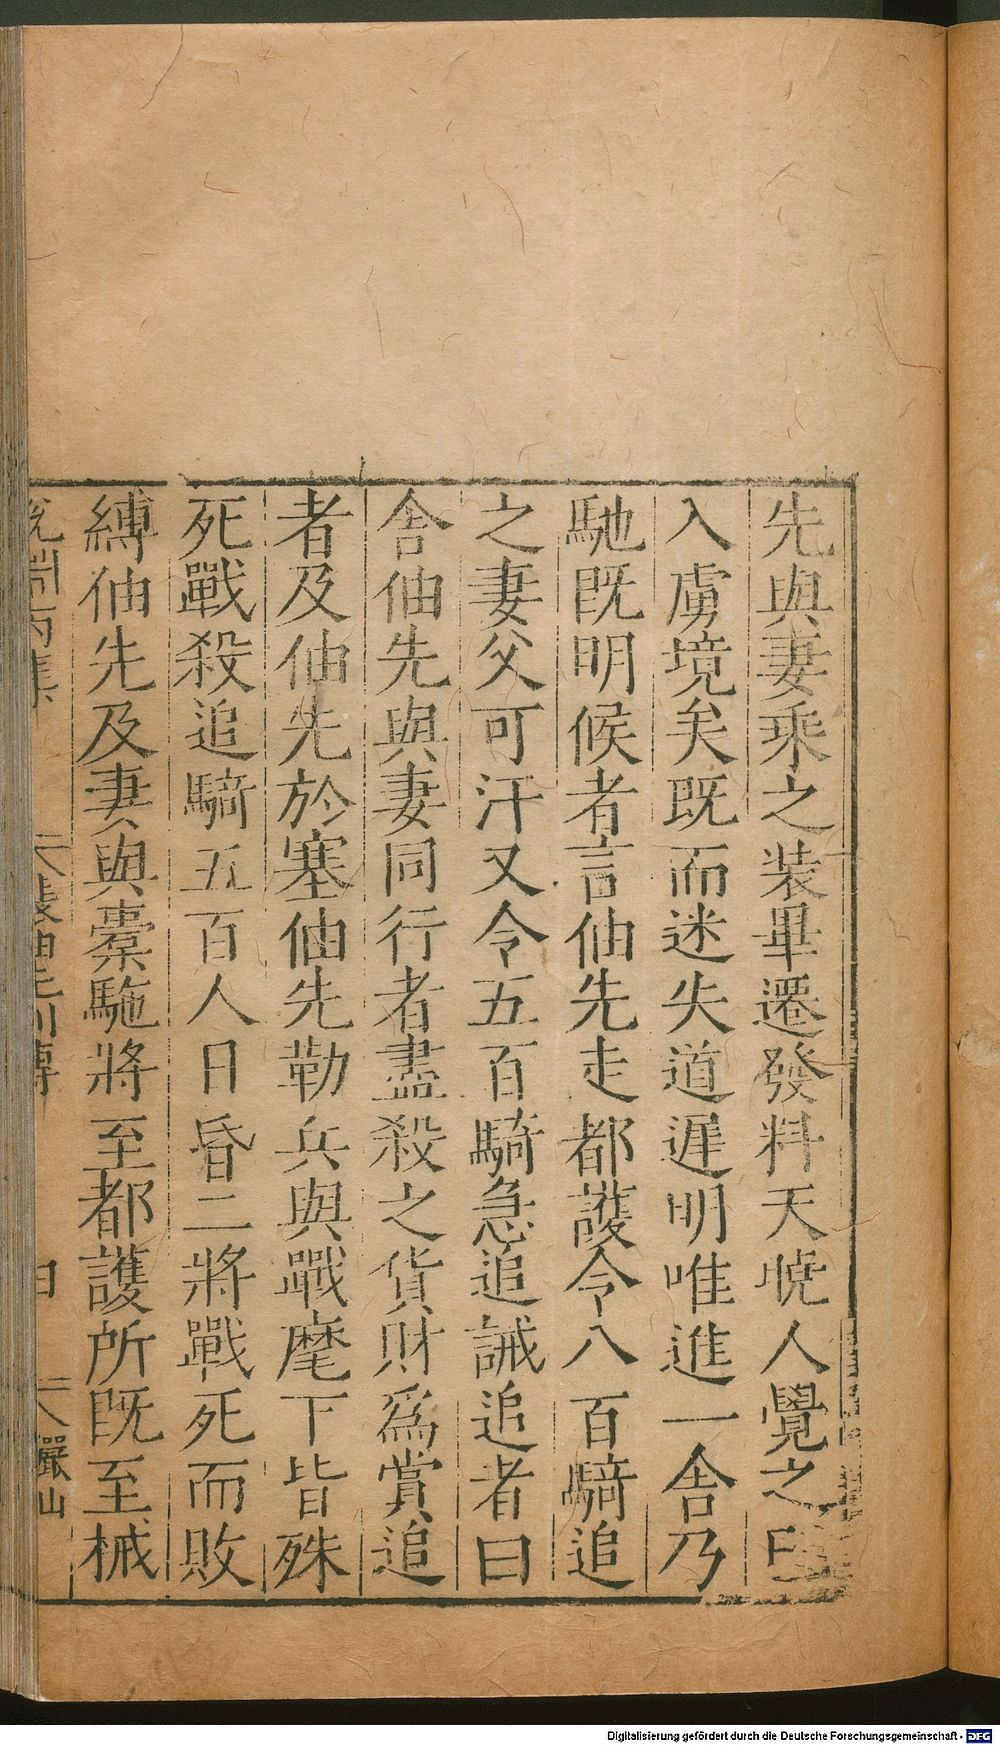 先與妻乘之裝畢遷發料天曉人覺之巳
入虜境矣既而迷失道遲明唯進一舍乃
馳既明候者言伷先走都護令八百騎追
之妻父可汗又令五百騎急追誡追者曰
舍伷先與妻同行者盡殺之貨財爲賞追
者及伷先於塞伷先勒兵與戰麾下皆殊
死戰殺追騎五百人日昏二將戰死而敗
縛伷先及妻與橐駞將至都護所既至械
說淵丙集 裴伷先別傳
儼山
Digitalisierung gefördert durch die Deutsche Forschungsgemeinschaft - DFG